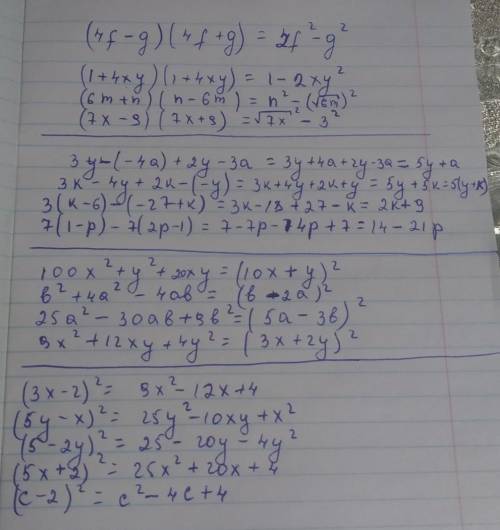 (4f-g)(4f+g) = 2f²-g²
(1+4xy)(1+4xy) = 1-2xy²
(6m+n)(n-6m) = n²-(√6m)²
(7x-9)(7x+9) = √7x² - 3²
3y-(-4a)+2y-3a = 3y+4a+2y-3a = 5y+a
3k-4y+2k-(-y) = 3k+4y+2k+y = 5y+5k = 5(y+k)
3(k-6)-(-27+k) = 3k-18+27-k = 2k+9
7(1-p)-7(2p-1) = 7-7p-14p+7 = 14-21p
100x²+y²+20xy = (10x+y)²
b²+4a²-4ab = (b-2a)²
25a²-30ab+9b² = (5a-3b)²
9x²+12xy+4y² = (3x+2y)²
(3x-2)² = 9x²-12x+4
(5y-x)² = 25y²-10xy+x²
(5-2y)² = 25-20y-4y²
(5x+2)² = 25x²+20x+4
(c-2)² = c²-4c+4